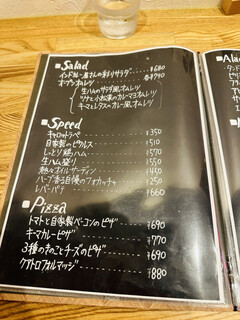 Salad
インドカレー屋さんの彩りサラダ ¥680
オープンオムレツ 各¥790
生ハムのサラダ風オムレツ
ツナと小松菜のカレーマヨオムレツ
キーマとレタスのカレー風オムレツ
Speed
キャロットラペ ¥350
自家製のピクルス ¥510
しっとり鶏ハム ¥570
生ハム盛り ¥550
オイルサーディン ¥450
ハーブ香る自慢のフォカッチャ ¥250
レバーパテ ¥660
Pizza
トマトと自家製ベーコンのピザ ¥690
キーマカレーピザ ¥770
3種のきのことチーズのピザ ¥690
クワトロフォルマッジ ¥880